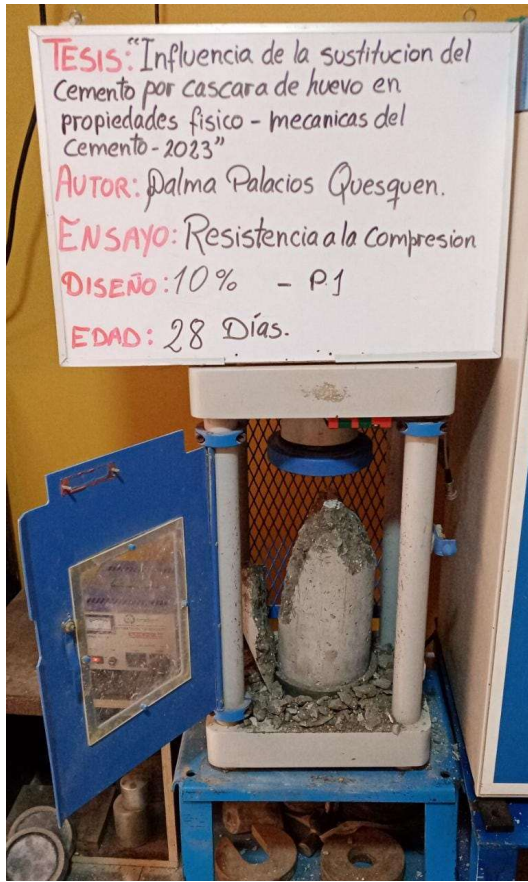 TESIS: "Influencia de la sustitucion del
Cemento por cascara de huevo en
propiedades fisico - mecanicas del
Cemento - 2023"
AUTOR: Dalma Palacios Quesquen.
ENSAYO: Resistencia a la Compresion
DISEÑO: 10% - P.1
EDAD: 28 Días.